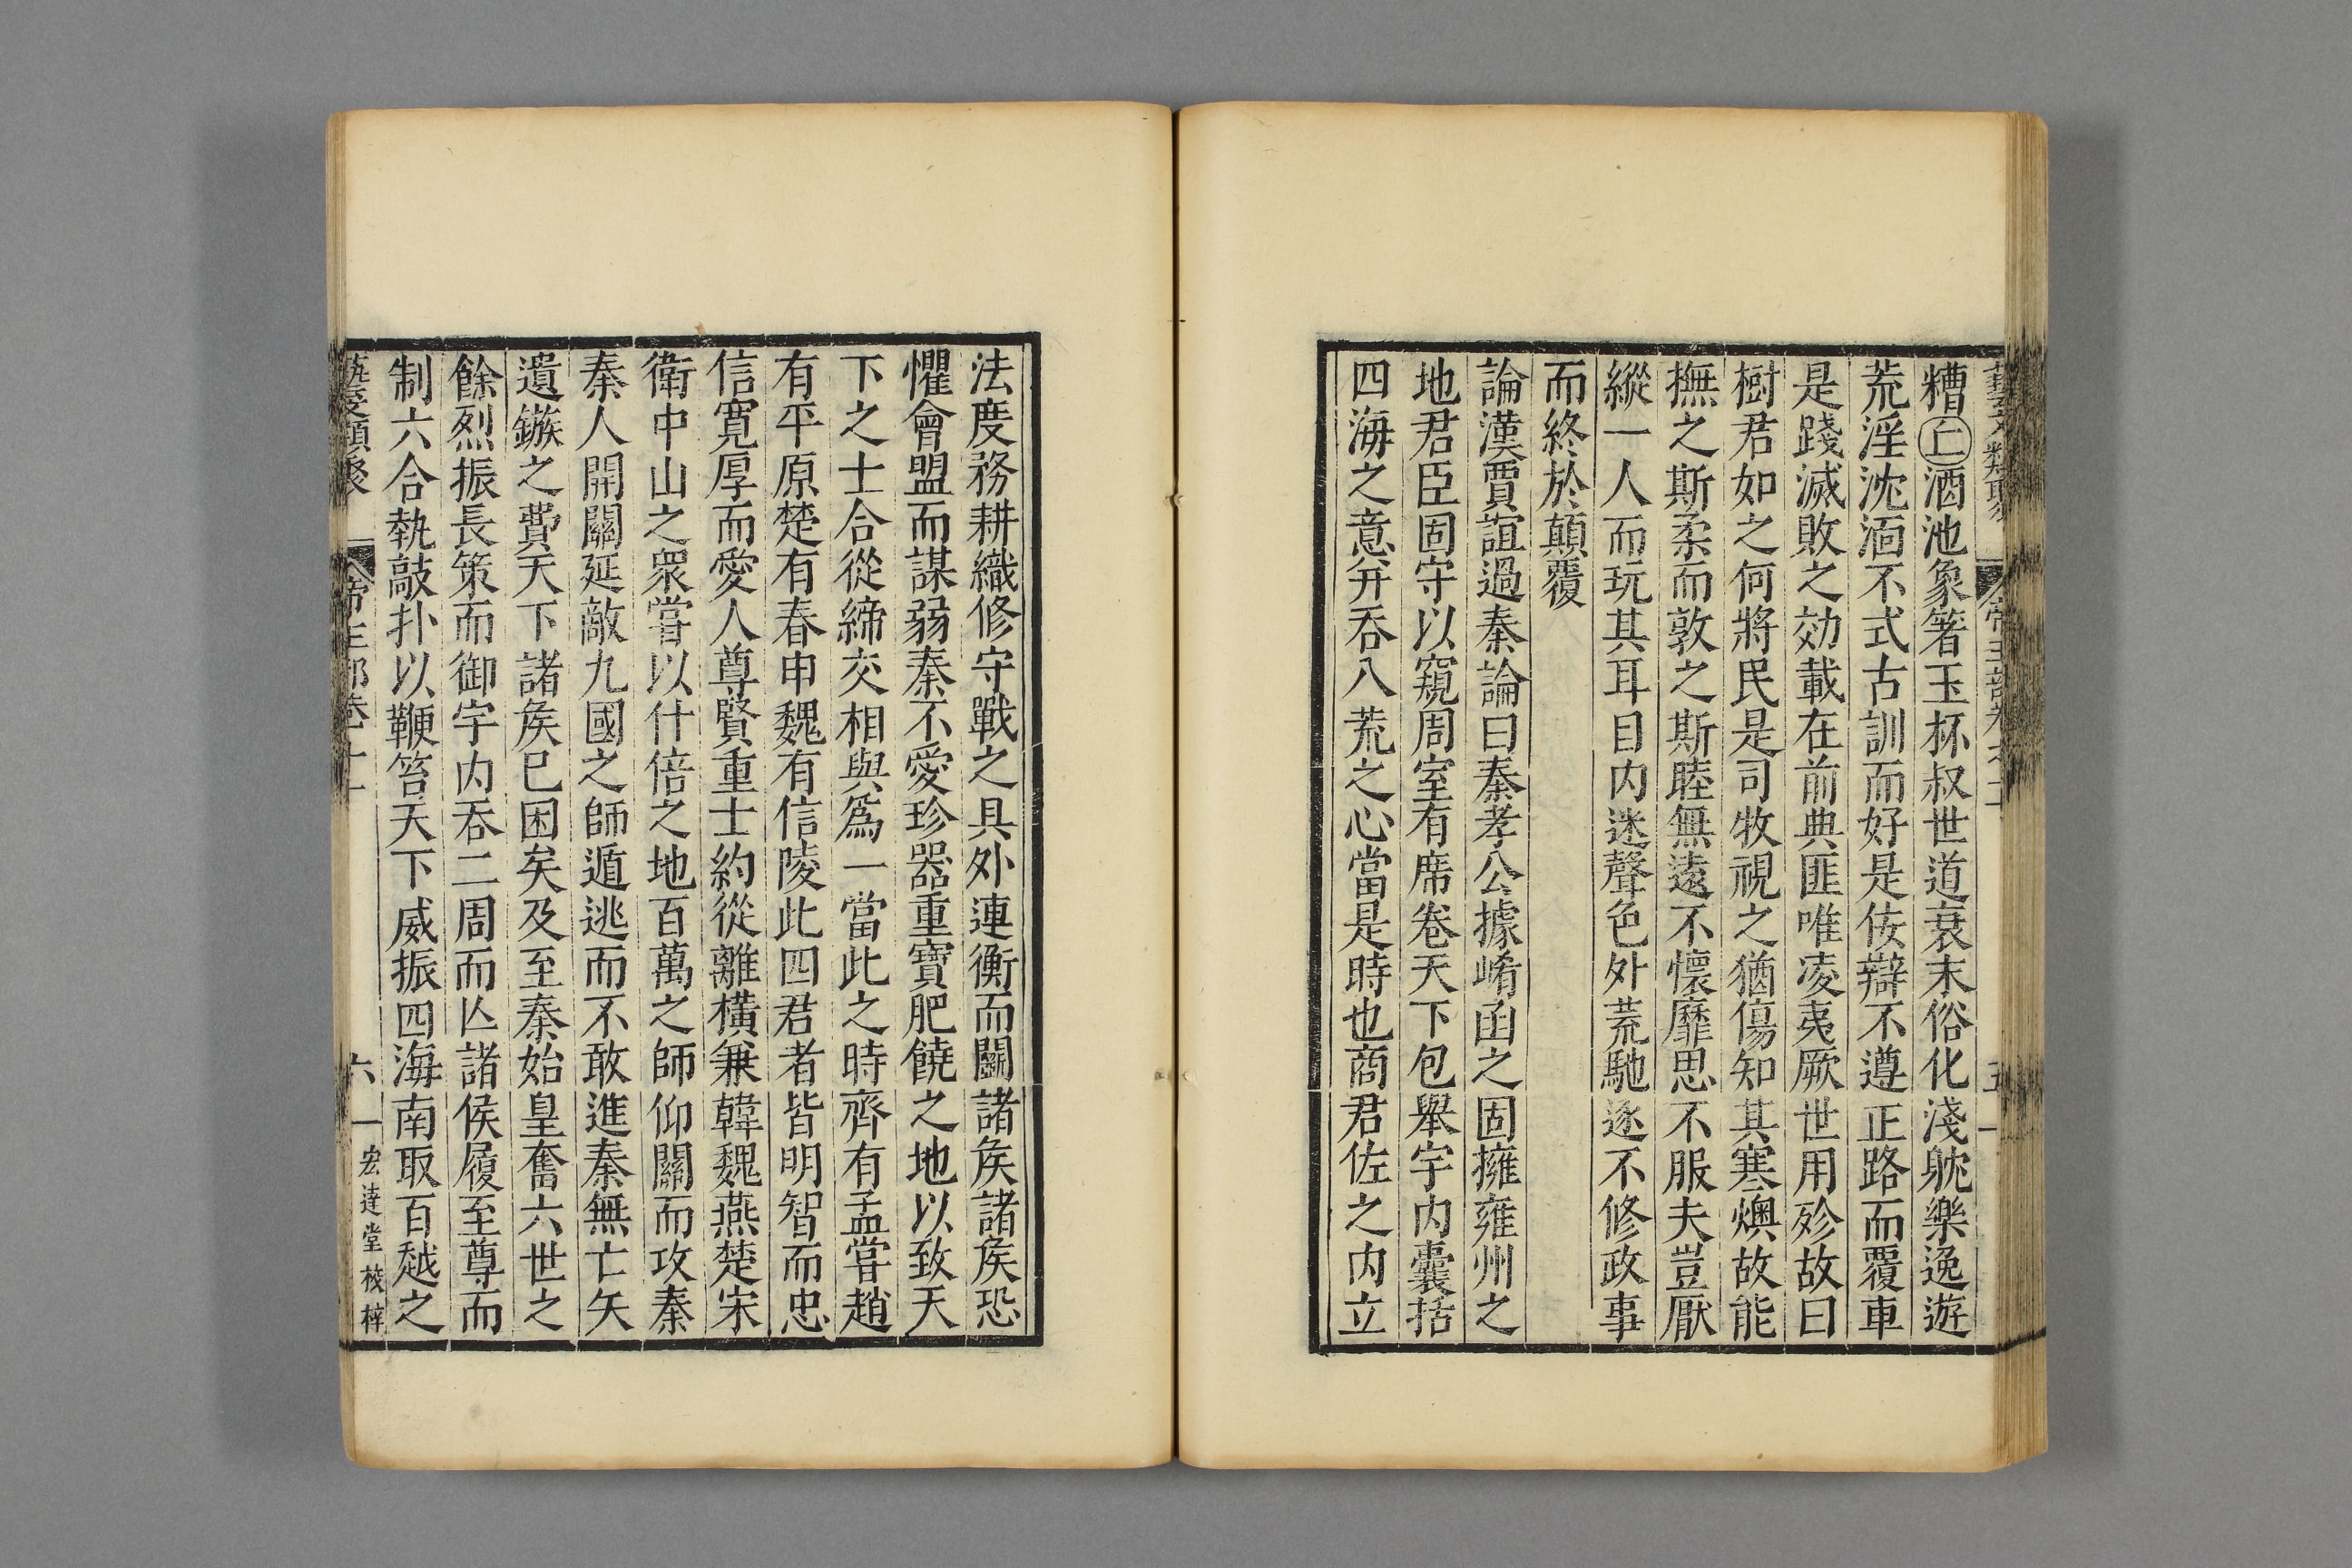 藝文類聚 帝王部卷十一 五
糟㠯酒池象箸玉杯叔世道衰末俗化淺躭樂逸遊
荒淫沈湎不式古訓而好是佞辯不遵正路而覆車
是踐滅敗之効載在前典匪唯凌夷厥世用殄故曰
樹君如之何將民是司牧視之猶傷知其寒燠故能
撫之斯柔而敦之斯睦無遠不懷靡思不服夫豈厭
縱一人而玩其耳目内迷聲色外荒馳逐不修政事
而終於顛覆
論漢賈誼過秦論曰秦孝公據崤函之固擁雍州之
地君臣固守以窺周室有席卷天下包舉宇内囊括
四海之意并吞八荒之心當是時也商君佐之内立
法度務耕織修守戰之具外連衡而鬭諸矦諸矦恐
懼會盟而謀弱秦不愛珍器重寶肥饒之地以致天
下之士合從締交相與爲一當此之時齊有孟嘗趙
有平原楚有春申魏有信陵此四君者皆明智而忠
信寛厚而愛人尊賢重士約從離橫兼韓魏燕楚宋
衛中山之衆嘗以什倍之地百萬之師仰關而攻秦
秦人開關延敵九國之師遁逃而不敢進秦無亡矢
遺鏃之費天下諸矦已困矣及至秦始皇奮六世之
餘烈振長策而御宇内吞二周而亾諸侯履至尊而
制六合執敲扑以鞭笞天下威振四海南取百越之
藝文類聚 帝王部卷十一 六 宏達堂校梓